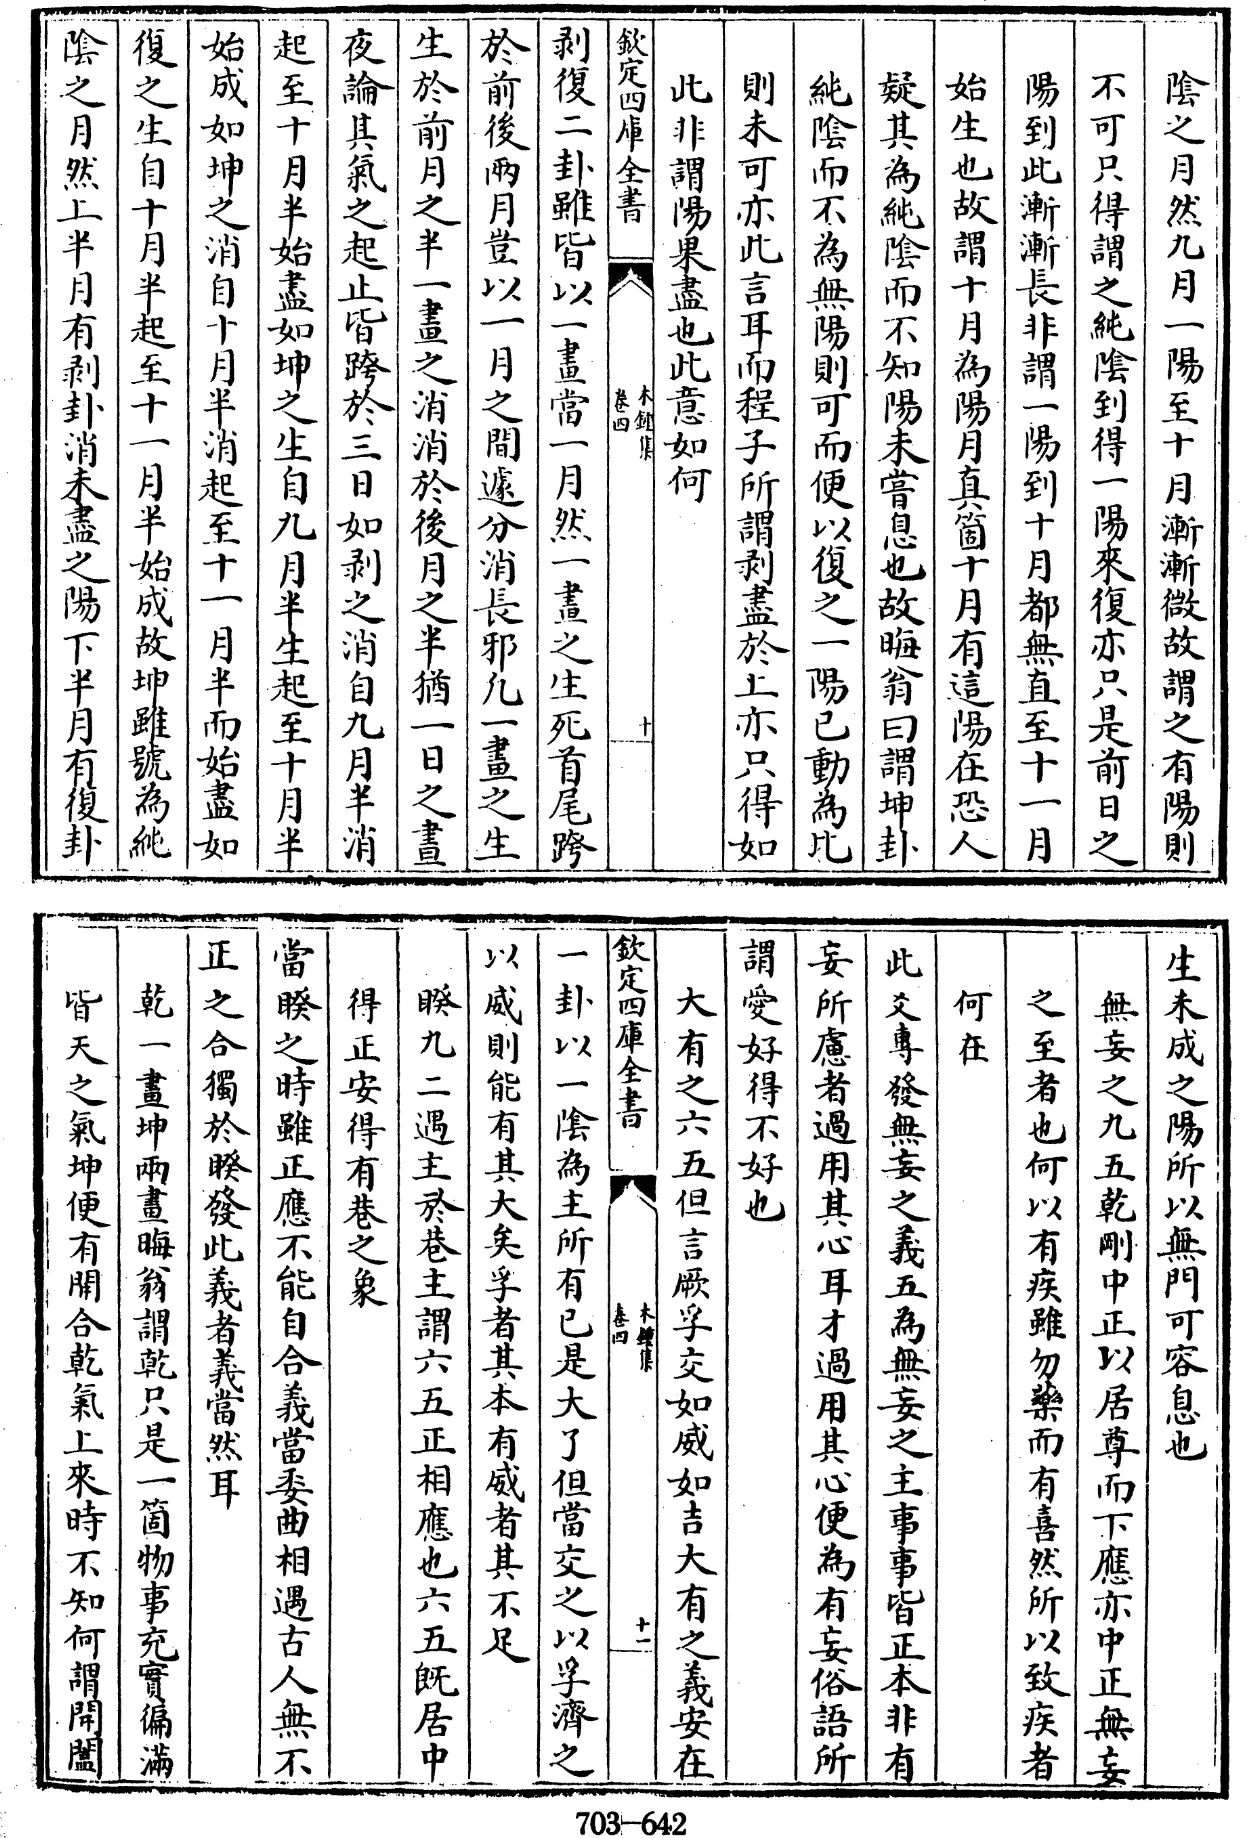 陰之月然九月一陽至十月漸漸微故謂之有陽則
不可只得謂之純陰到得一陽來復亦只是前日之
陽到此漸漸長非謂一陽到十月都無直至十一月
始生也故謂十月為陽月真箇十月有這陽在恐人
疑其為純陰而不知陽未嘗息也故晦翁曰謂坤卦
純陰而不為無陽則可而便以復之一陽已動為比
則未可亦此言耳而程子所謂剥盡於上亦只得如
此非謂陽果盡也此意如何
欽定四庫全書
木鍾集
卷四
十
剥復二卦雖皆以一畫當一月然一畫之生死首尾跨
於前後兩月豈以一月之間遽分消長邪凡一畫之生
生於前月之半一畫之消消於後月之半猶一日之晝
夜論其氣之起止皆跨於三日如剥之消自九月半消
起至十月半始盡如坤之生自九月半生起至十月半
始成如坤之消自十月半消起至十一月半而始盡如
復之生自十月半起至十一月半始成故坤雖號為純
陰之月然上半月有剥卦消未盡之陽下半月有復卦
生未成之陽所以無門可容息也
無妄之九五乾剛中正以居尊而下應亦中正無妄
之至者也何以有疾雖勿藥而有喜然所以致疾者
何在
此爻專發無妄之義五為無妄之主事事皆正本非有
妄所慮者過用其心耳才過用其心便為有妄俗語所
謂愛好得不好也
大有之六五但言厥孚交如威如吉大有之義安在
欽定四庫全書
木鍾集
卷四
十一
一卦以一陰為主所有已是大了但當交之以孚濟之
以威則能有其大矣孚者其本有威者其不足
睽九二遇主於巷主謂六五正相應也六五既居中
得正安得有巷之象
當睽之時雖正應不能自合義當委曲相遇古人無不
正之合獨於睽發此義者義當然耳
乾一畫坤兩畫晦翁謂乾只是一箇物事充實徧滿
皆天之氣坤便有開合乾氣上來時不知何謂開闔
703-642